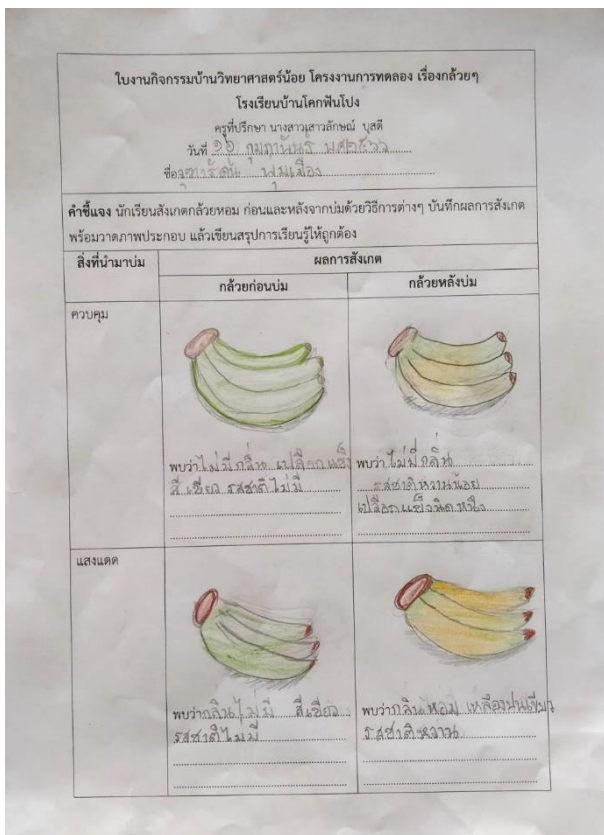 ใบงานกิจกรรมบ้านวิทยาศาสตร์น้อย โครงงานการทดลอง เรื่องกล้วยๆ
โรงเรียนบ้านโคกฟันโปง
ครูที่ปรึกษา นางสาวเสาวลักษณ์ บุสดี
วันที่ ๑๖ กุมภาพันธ์ พศ๒๕๖๖
ชื่อ
คำชี้แจง นักเรียนสังเกตกล้วยหอม ก่อนและหลังจากบ่มด้วยวิธีการต่างๆ บันทึกผลการสังเกต
พร้อมวาดภาพประกอบ แล้วเขียนสรุปการเรียนรู้ให้ถูกต้อง
สิ่งที่นำมาบ่ม
ผลการสังเกต
กล้วยก่อนบ่ม
กล้วยหลังบ่ม
ควบคุม
พบว่าไม่มีกลิ่น เปลือกแข็ง
สีเขียว รสชาติไม่มี
พบว่าไม่มีกลิ่น
รสชาติหวานน้อย
เปลือกแข็งนิดหนึ่ง
แสงแดด
พบว่ากลิ่นไม่มี สีเขียว
รสชาติไม่มี
พบว่ากลิ่นหอม เหลืองปนเขียว
รสชาติหวาน